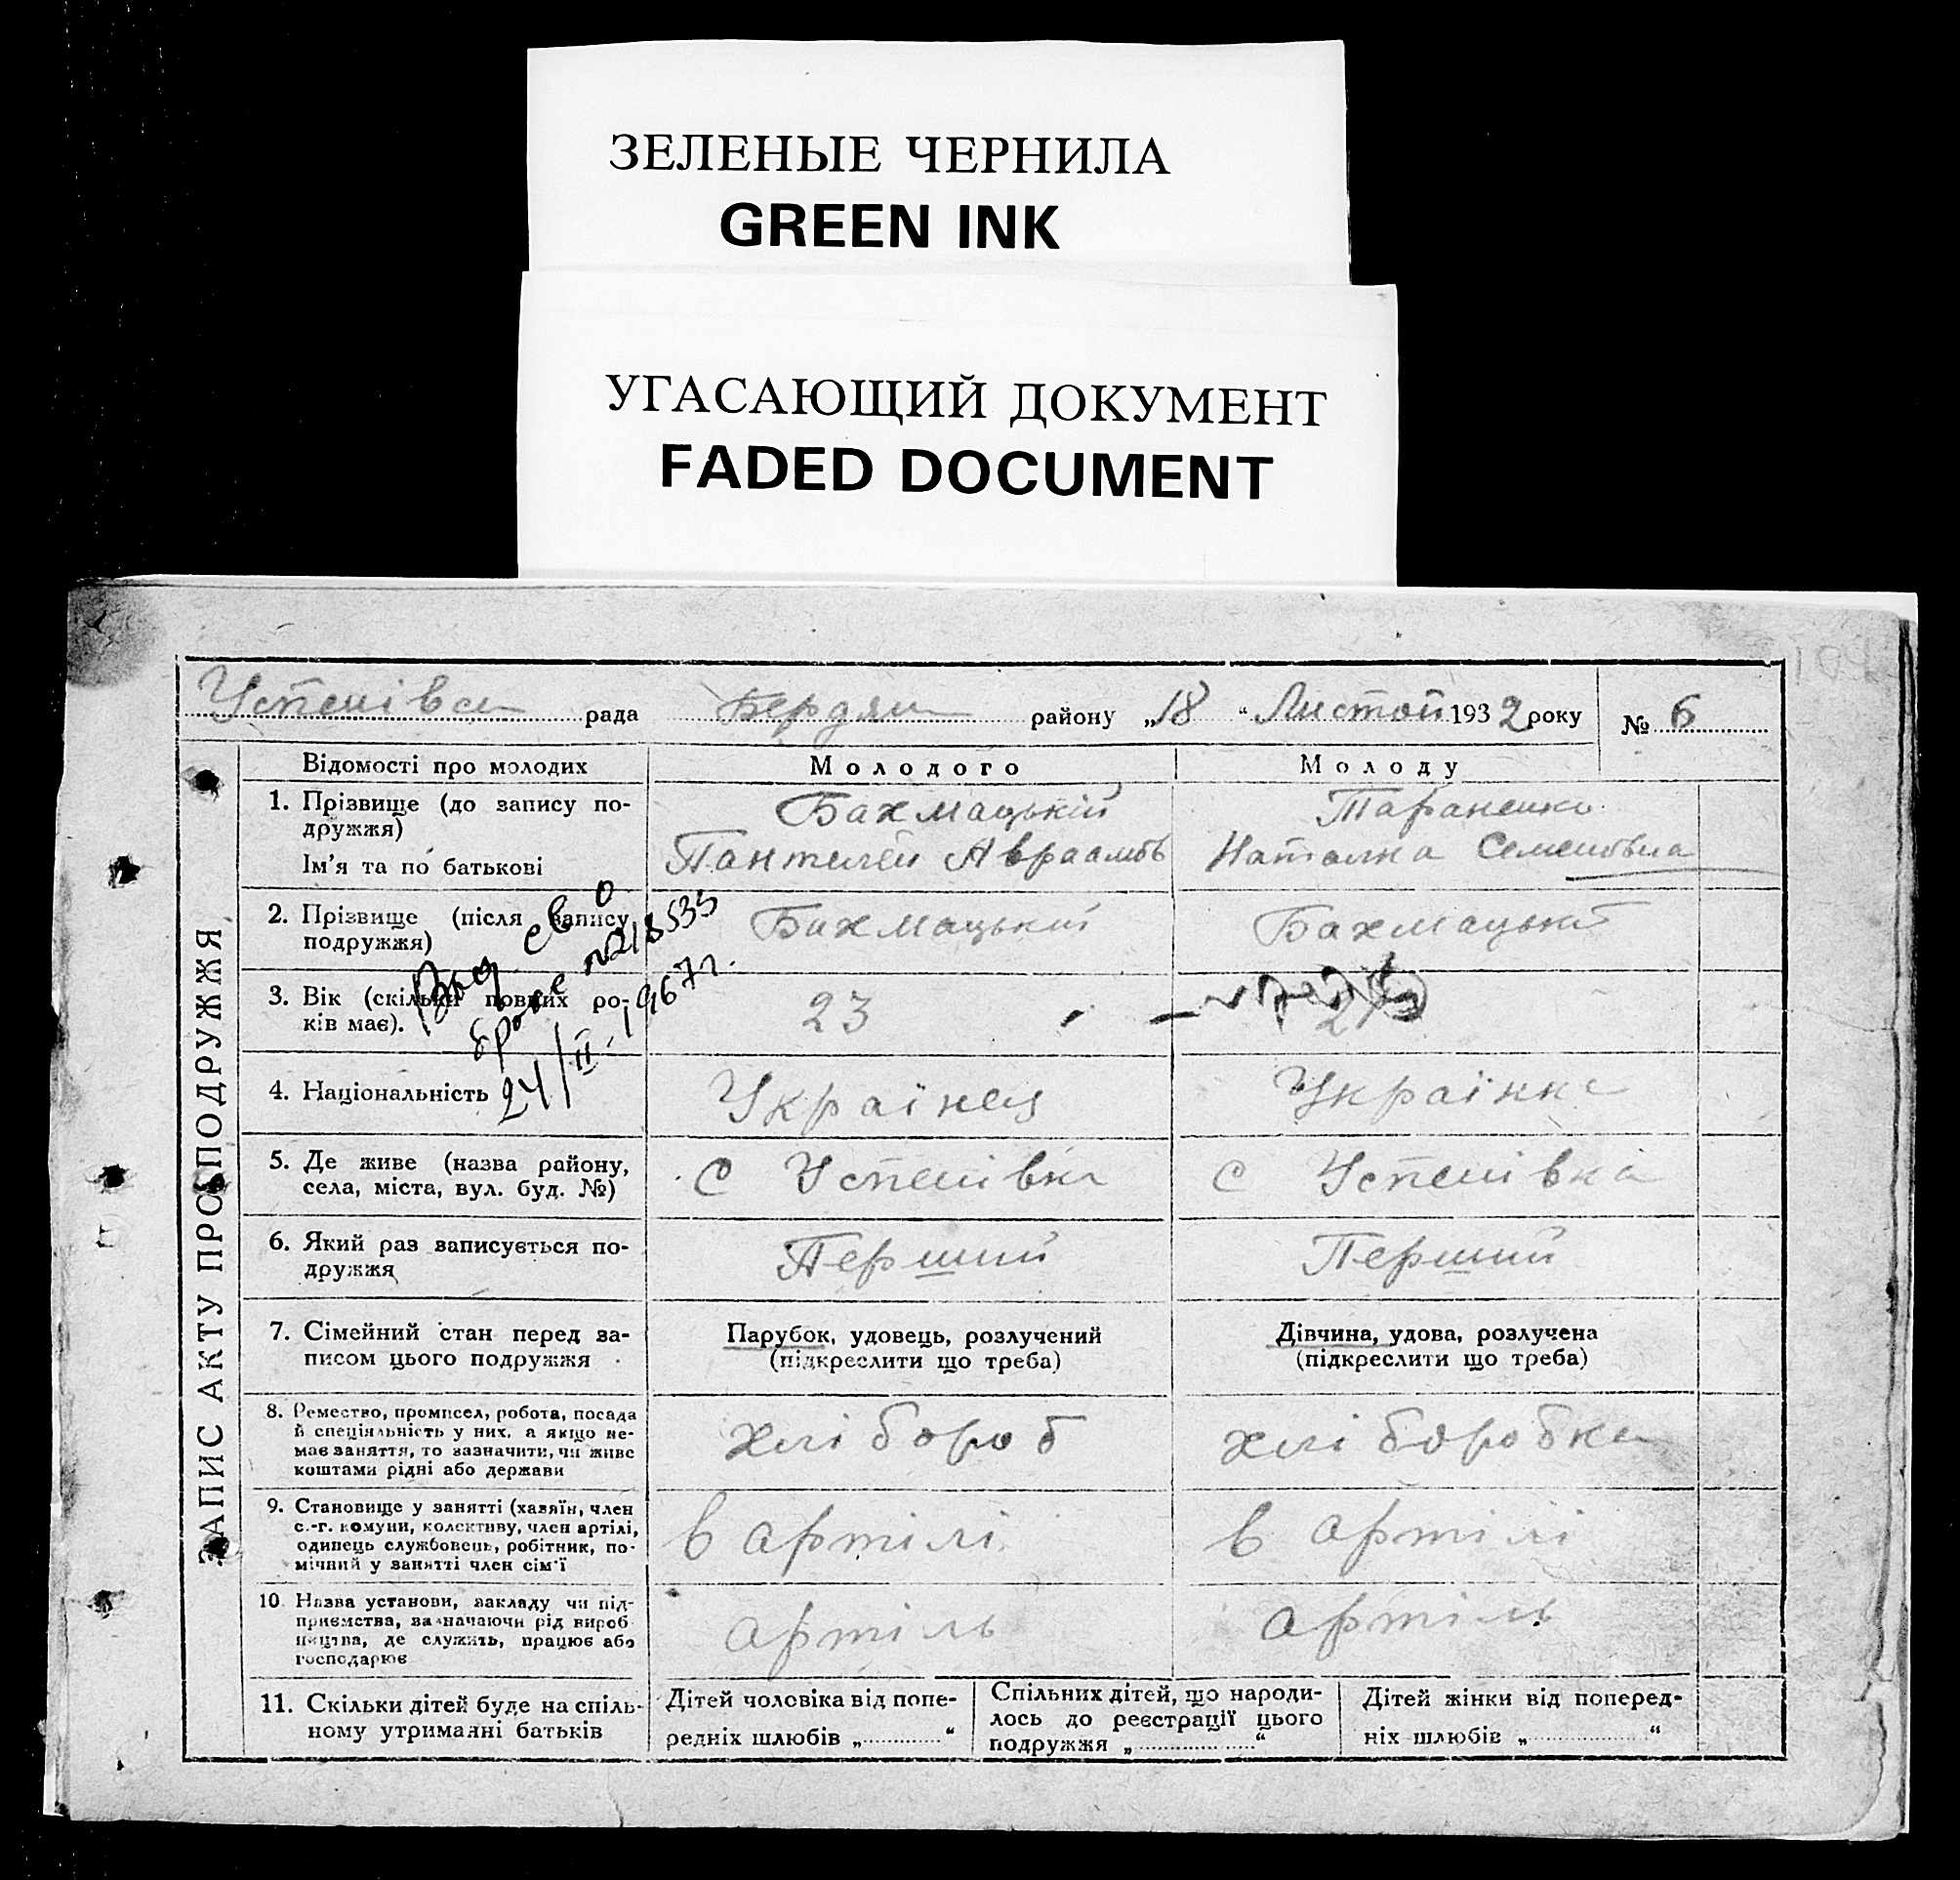 ЗЕЛЕНЫЕ ЧЕРНИЛА
GREEN INK
УГАСАЮЩИЙ ДОКУМЕНТ
FADED DOCUMENT
Успенівка рада Бердян району „18“ Листоп 1932 року № 6
ЗАПИС АКТУ ПРО ПОДРУЖЖЯ
Відомості про молодих Молодого Молоду
1. Прізвище (до запису по-
дружжя)
Бахмацький Тараненко
Ім'я та по батькові
Пантилей Авраамов Наталка Семеновна
2. Прізвище (після запису
подружжя)
Бахмацький Бахмацький
3. Вік (скільки повних ро-
ків має).
23
Выд. св о
браке №218535
24/II-1967г.
4. Національність Українец Українка
5. Де живе (назва району,
села, міста, вул. буд. №)
с Успенівка с Успенівка
6. Який раз записується по-
дружжя
Перший Перший
7. Сімейний стан перед за-
писом цього подружжя
Парубок, удовець, розлучений
(підкреслити що треба)
Дівчина, удова, розлучена
(підкреслити що треба)
8. Ремество, промисел, робота, посада
й спеціяльність у них, а якщо не-
має заняття, то зазначити, чи живе
коштами рідні або держави
хлібороб хліборобка
9. Становище у занятті (хазяїн, член
с.-г. комуни, колективу, член артілі,
одинець службовець, робітник, по-
мічний у занятті член сім'ї
в артілі в артілі
10 Назва установи, закладу чи під-
приємства, зазначаючи рід вироб
ництва, де служить, працює або
господарює
артіль артіль
11. Скільки дітей буде на спіль-
ному утриманні батьків
Дітей чоловіка від попе-
редніх шлюбів „ “
Спільних дітей, що народи-
лось до реєстрації цього
подружжя „ “
Дітей жінки від поперед-
ніх шлюбів „ “